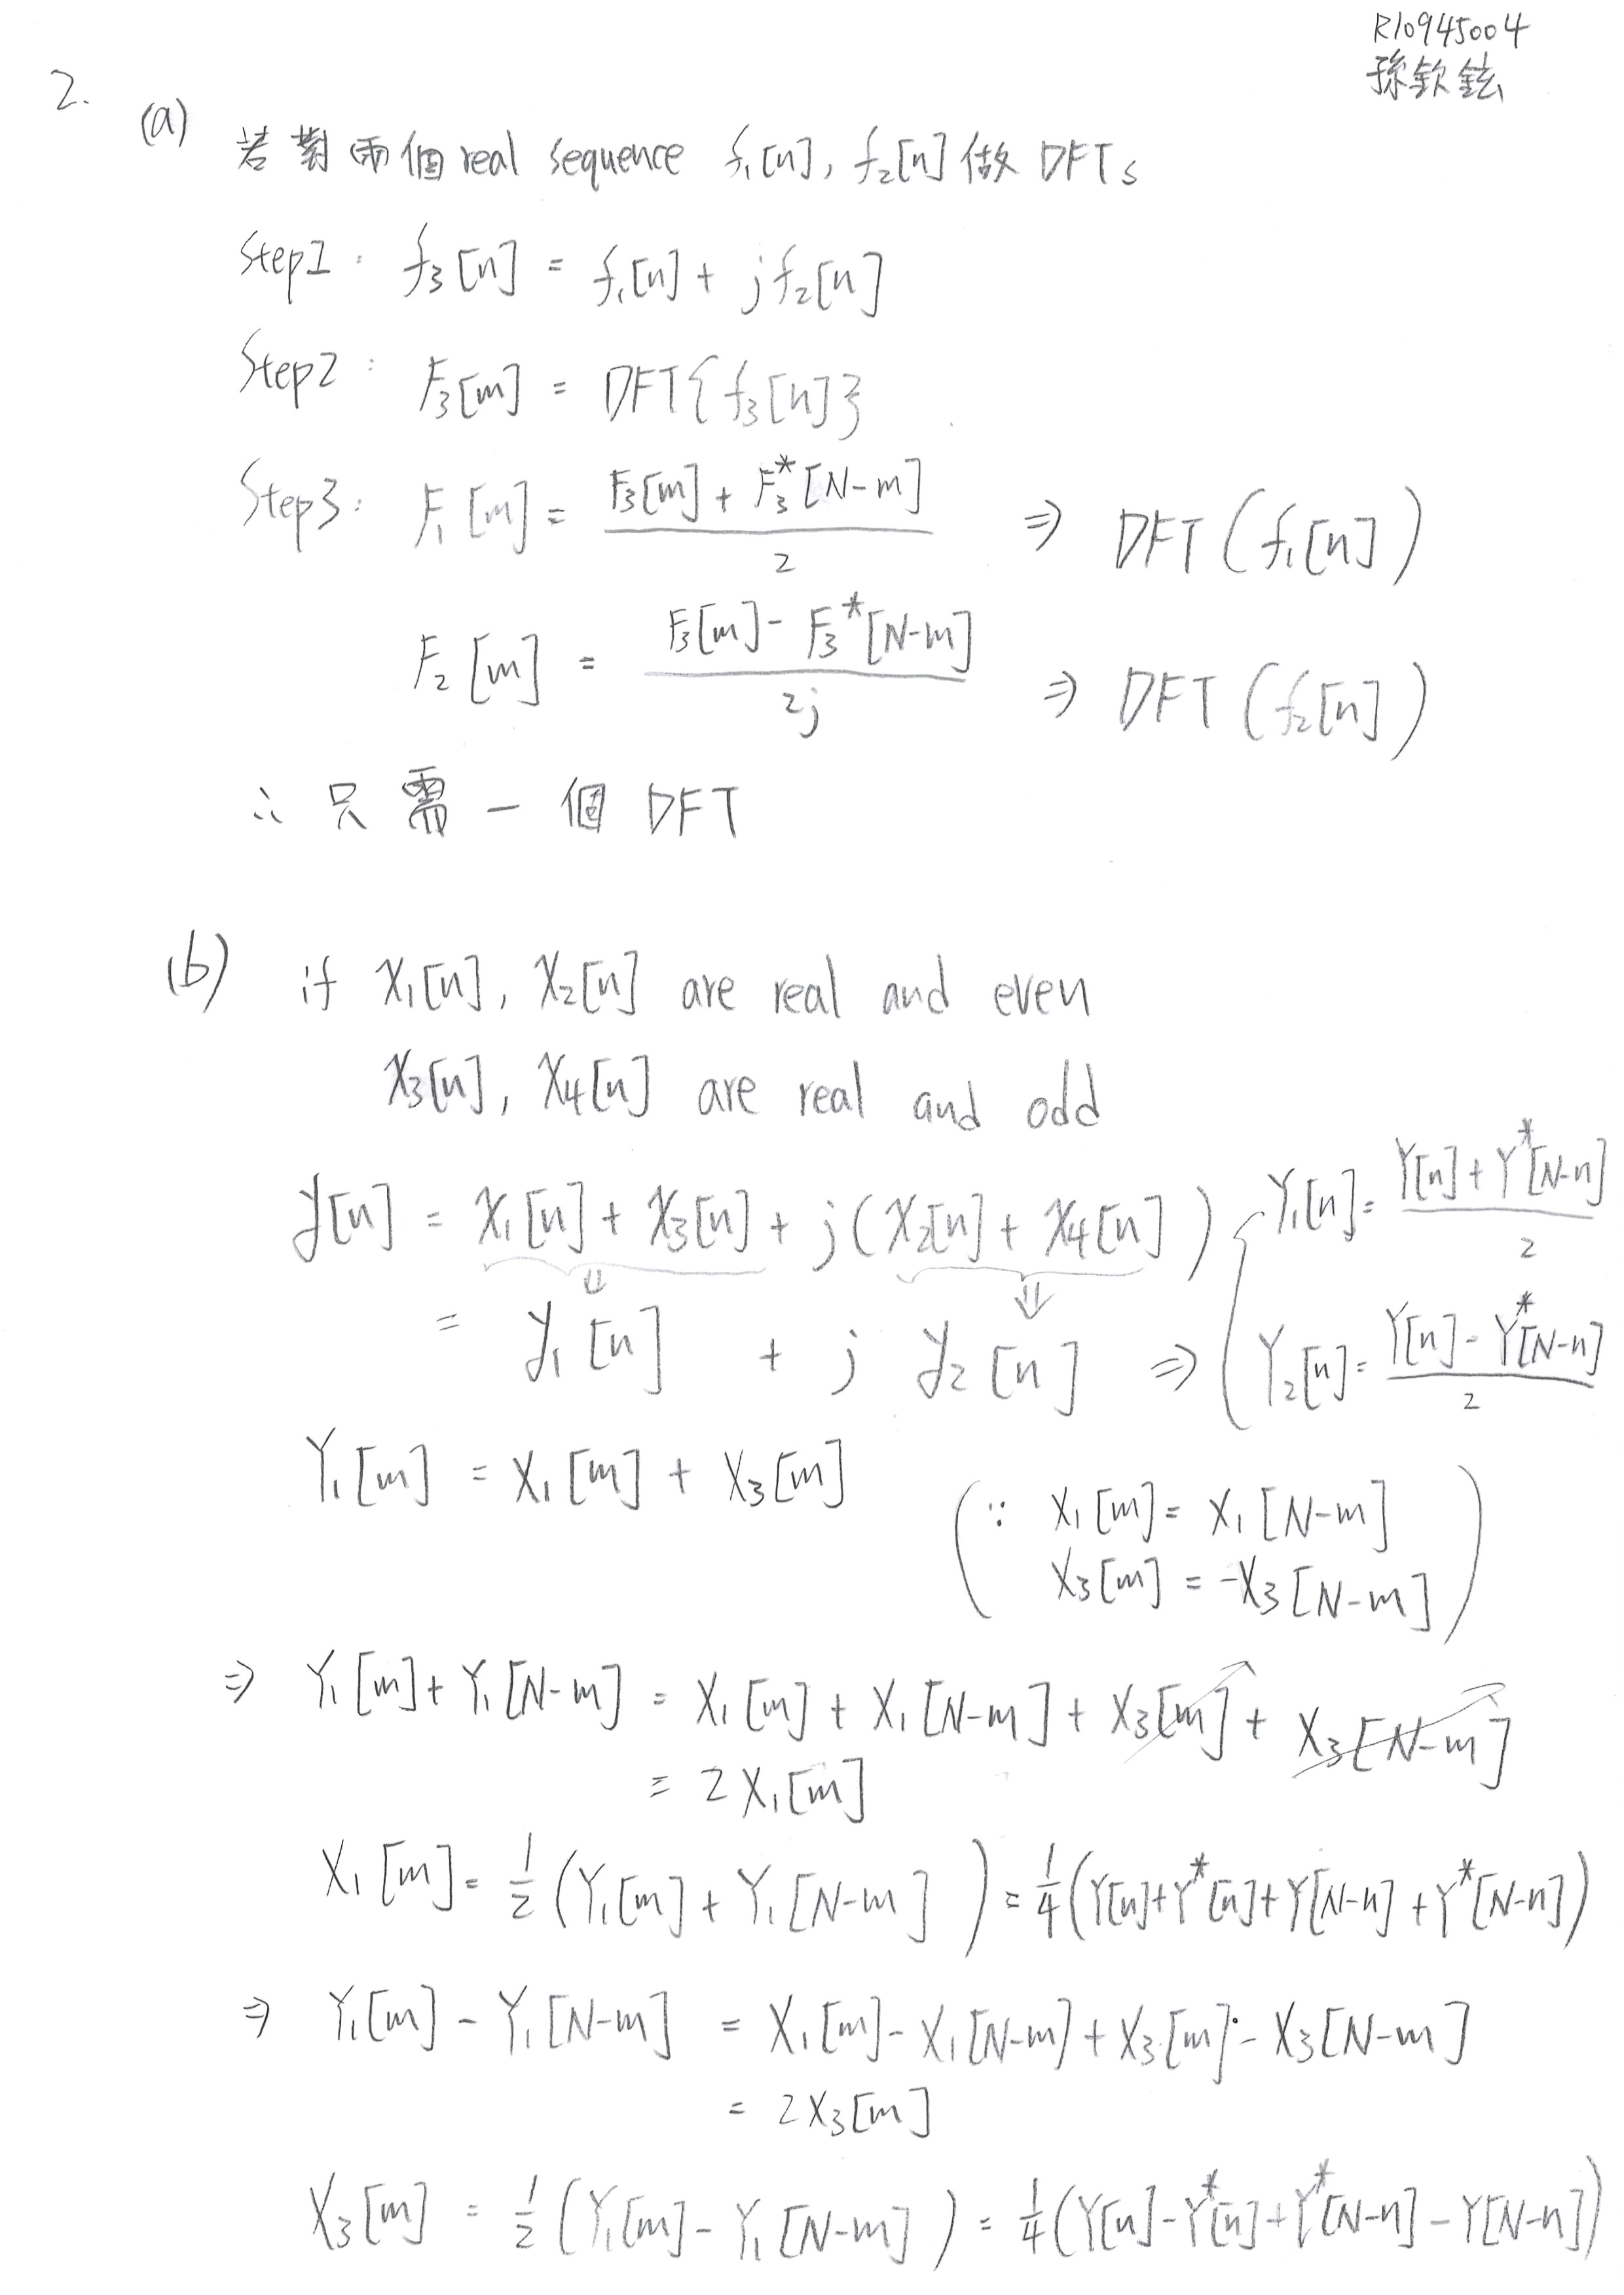 R10945004
孫欽鉉
2.
(a) 若對兩個 real sequence f₁[n], f₂[n] 做 DFTs
Step1: f₃[n] = f₁[n] + jf₂[n]
Step2: F₃[m] = DFT{f₃[n]}
Step3: F₁[m] = (F₃[m] + F₃*[N-m]) / 2 ⇒ DFT(f₁[n])
F₂[m] = (F₃[m] - F₃*[N-m]) / 2j ⇒ DFT(f₂[n])
∴ 只需一個 DFT
(b) if X₁[n], X₂[n] are real and even
X₃[n], X₄[n] are real and odd
y[n] = X₁[n] + X₃[n] + j(X₂[n] + X₄[n])
= y₁[n] + j y₂[n] ⇒ { Y₁[n] = (Y[n] + Y*[N-n]) / 2
Y₂[n] = (Y[n] - Y*[N-n]) / 2
Y₁[m] = X₁[m] + X₃[m]
(∵ X₁[m] = X₁[N-m]
X₃[m] = -X₃[N-m])
⇒ Y₁[m] + Y₁[N-m] = X₁[m] + X₁[N-m] + X₃[m] + X₃[N-m]
= 2X₁[m]
X₁[m] = 1/2 (Y₁[m] + Y₁[N-m]) = 1/4 (Y[n] + Y*[n] + Y[N-n] + Y*[N-n])
⇒ Y₁[m] - Y₁[N-m] = X₁[m] - X₁[N-m] + X₃[m] - X₃[N-m]
= 2X₃[m]
X₃[m] = 1/2 (Y₁[m] - Y₁[N-m]) = 1/4 (Y[n] - Y*[n] + Y*[N-n] - Y[N-n])